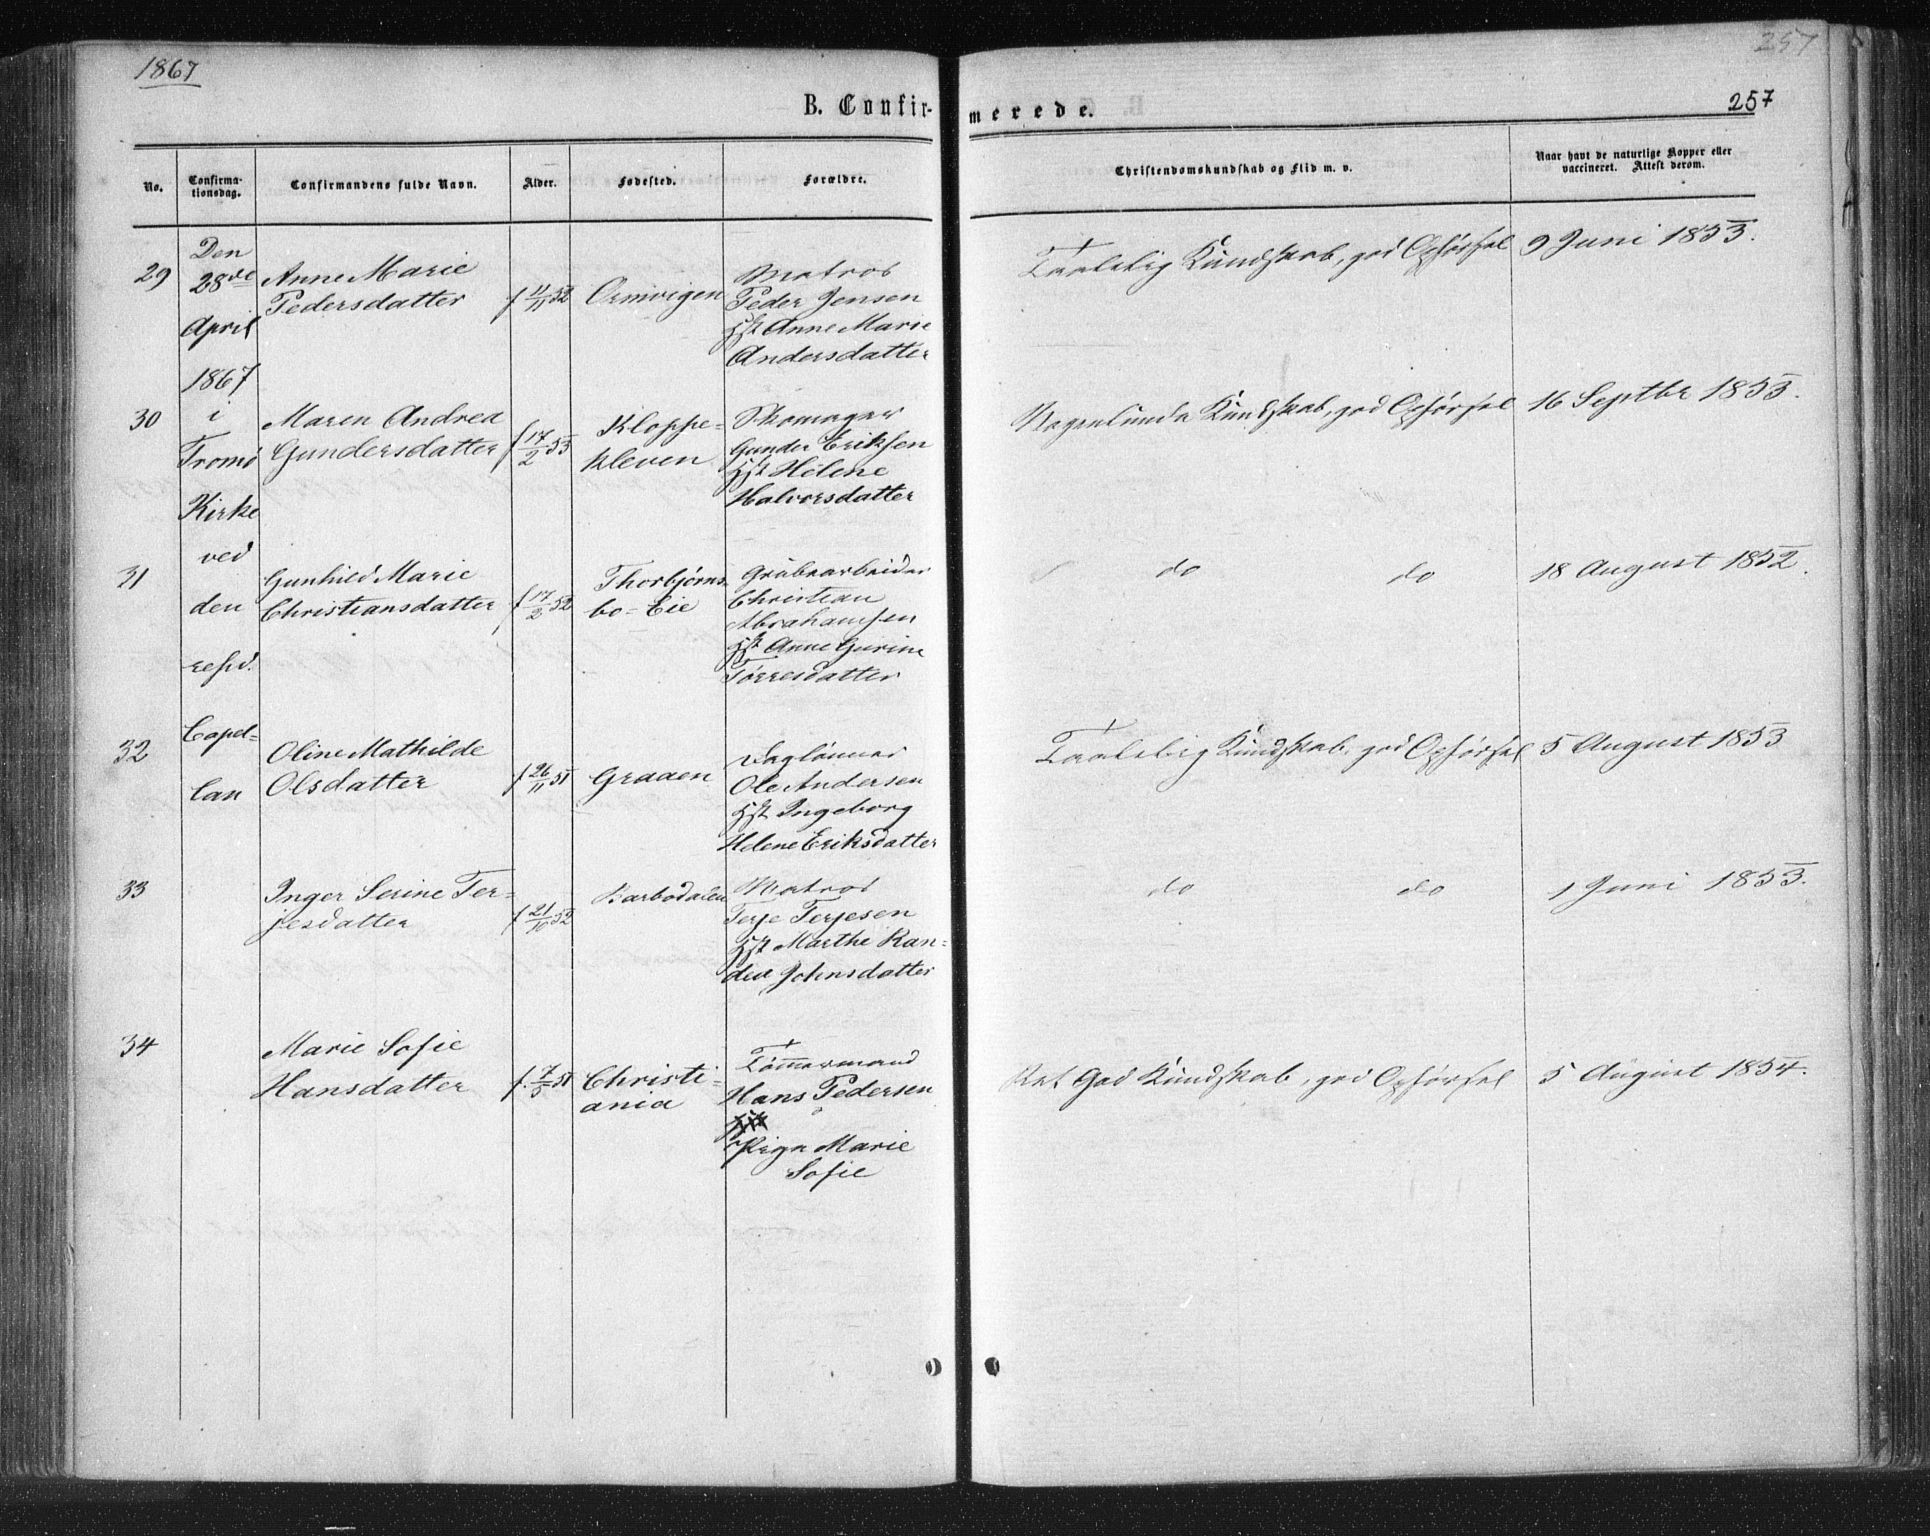 1867
257
B. Confir-
merede.
257
No.
Confirma-
tionsdag.
Confirmandens fulde Navn.
Alder.
Fødested.
Forældre.
Christendomskundskab og Flid m. v.
Naar havt de naturlige Kopper eller
vaccineret. Attest derom.
Den
28de
April
1867
i
Tromø
Kirke
ved
den
resid.
Capel-
lan
29
Anne Marie
Pedersdatter
f 11/11 52
Ormvigen
Matros
Peder Jensen
Hst Anne Marie
Andersdatter
Taalelig Kundskab, god Opførsel
9 Juni 1853.
30
Maren Andrea
Gundersdatter
f 17/2 53
Kloppe-
kleven
Skomager
Gunder Eriksen
Hst Helene
Halvorsdatter
Nogenlunde Kundskab, god Opførsel
16 Septbr 1853.
31
Gunhild Marie
Christiansdatter
f 17/2 52
Thorbjørns-
bo-Eie
Grubearbeider
Christian
Abrahamsen
Hst Anne Gurine
Tørresdatter
do do
18 August 1852.
32
Oline Mathilde
Olsdatter
f 26/11 51
Graaen
Daglønner
Ole Andersen
Hst Ingeborg
Helene Eriksdatter
Taalelig Kundskab, god Opførsel
5 August 1853
33
Inger Serine Ter-
jesdatter
f 21/10 52
Barbodalen
Matros
Terje Terjesen
Hst Marthe Ran-
dea Johnsdatter
do do
1 Juni 1853.
34
Marie Sofie
Hansdatter
f. 7/5 51
Christi-
ania
Tømmermand
Hans Pedersen
Pige Marie
Sofie
Ret God Kundskab, god Opførsel
5 August 1854.